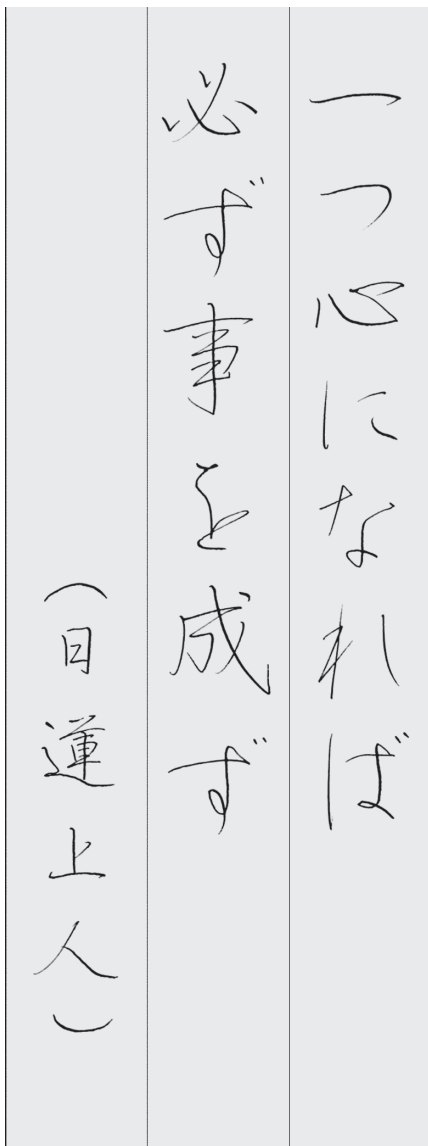 一つ心になれば
必ず事を成ず
（日蓮上人）